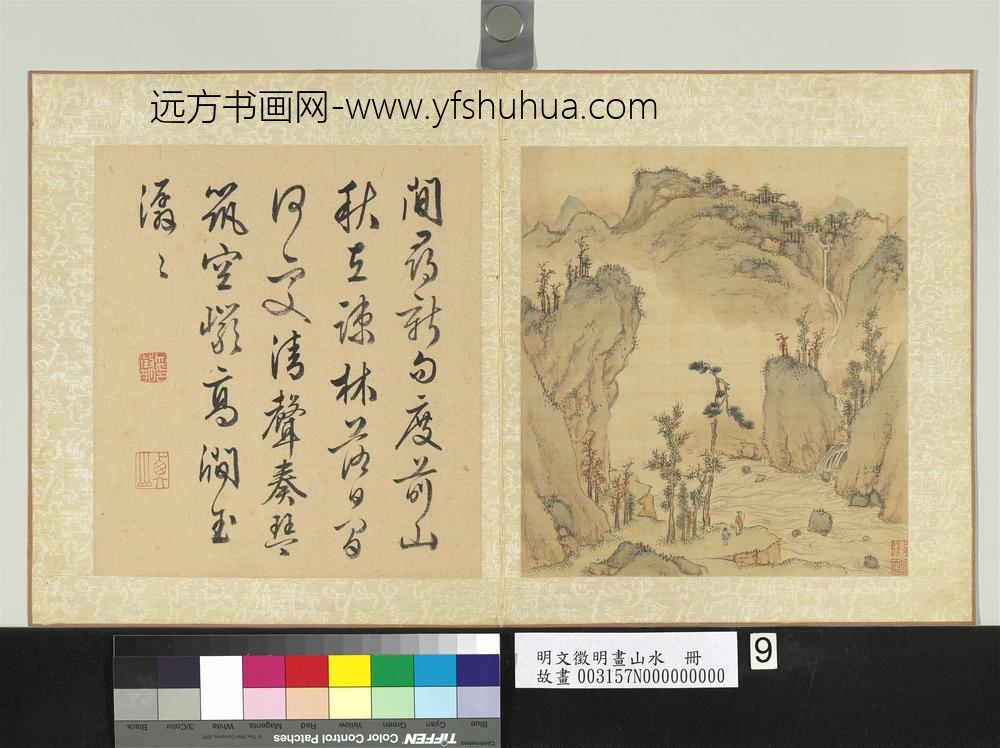 远方书画网-www.yfshuhua.com
閒尋新句度前山
秋在疎林落日間
何處清聲奏琴
筑空巖高澗玉
潺〻
明文徵明畫山水 冊
故畫 003157N000000000
9
Blue Cyan Green Yellow Red Magenta White 3/Color Black
Centimetres
TIFFEN Color Control Patches